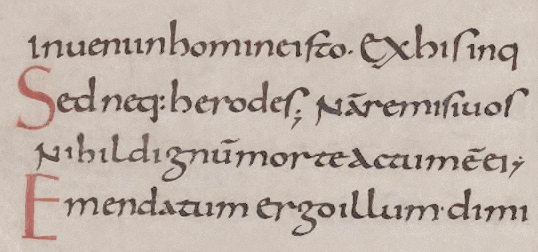 inueniinhomineisto. Exhisinq
Sed neq: herodes; Nāremisiuos
Nihil dignūmorte actumēei;
Emendatum ergo illum. dimi